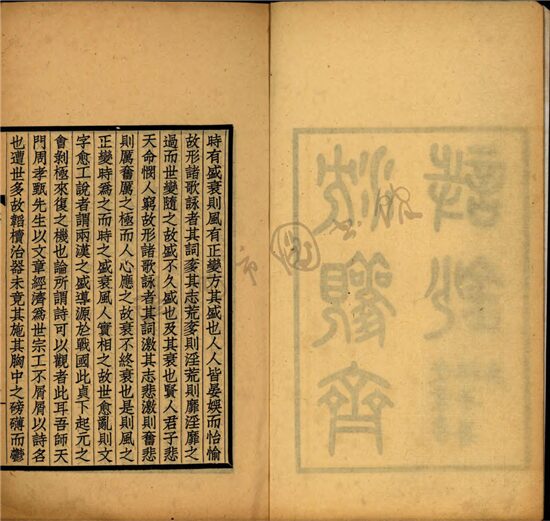 時有盛衰則風有正變方其盛也人人皆晏娛而怡愉
故形諸歌詠者其詞奓其志荒奓則淫荒則靡淫靡之
過而世變隨之故盛不久盛也及其衰也賢人君子悲
天命憫人窮故形諸歌詠者其詞激其志悲激則奮悲
則厲奮厲之極而人心應之故衰不終衰也是則風之
正變時為之而時之盛衰風人實相之故世愈亂則文
字愈工說者謂兩漢之盛導源於戰國此貞下起元之
會剝極來復之機也論所謂詩可以觀者此耳吾師天
門周孝甄先生以文章經濟為世宗工不屑屑以詩名
也遭世多故韜櫝治器未竟其施其胸中之磅礴而鬱